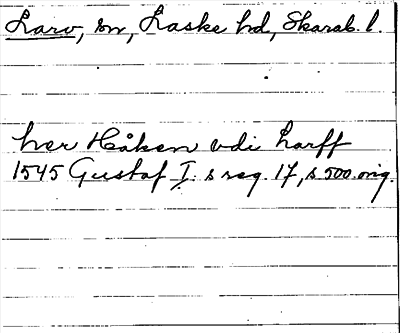 Larv, sn, Laske hd, Skarab. l.
her Håken vdi Larff
1545 Gustaf I:s reg. 17, s 500. orig.